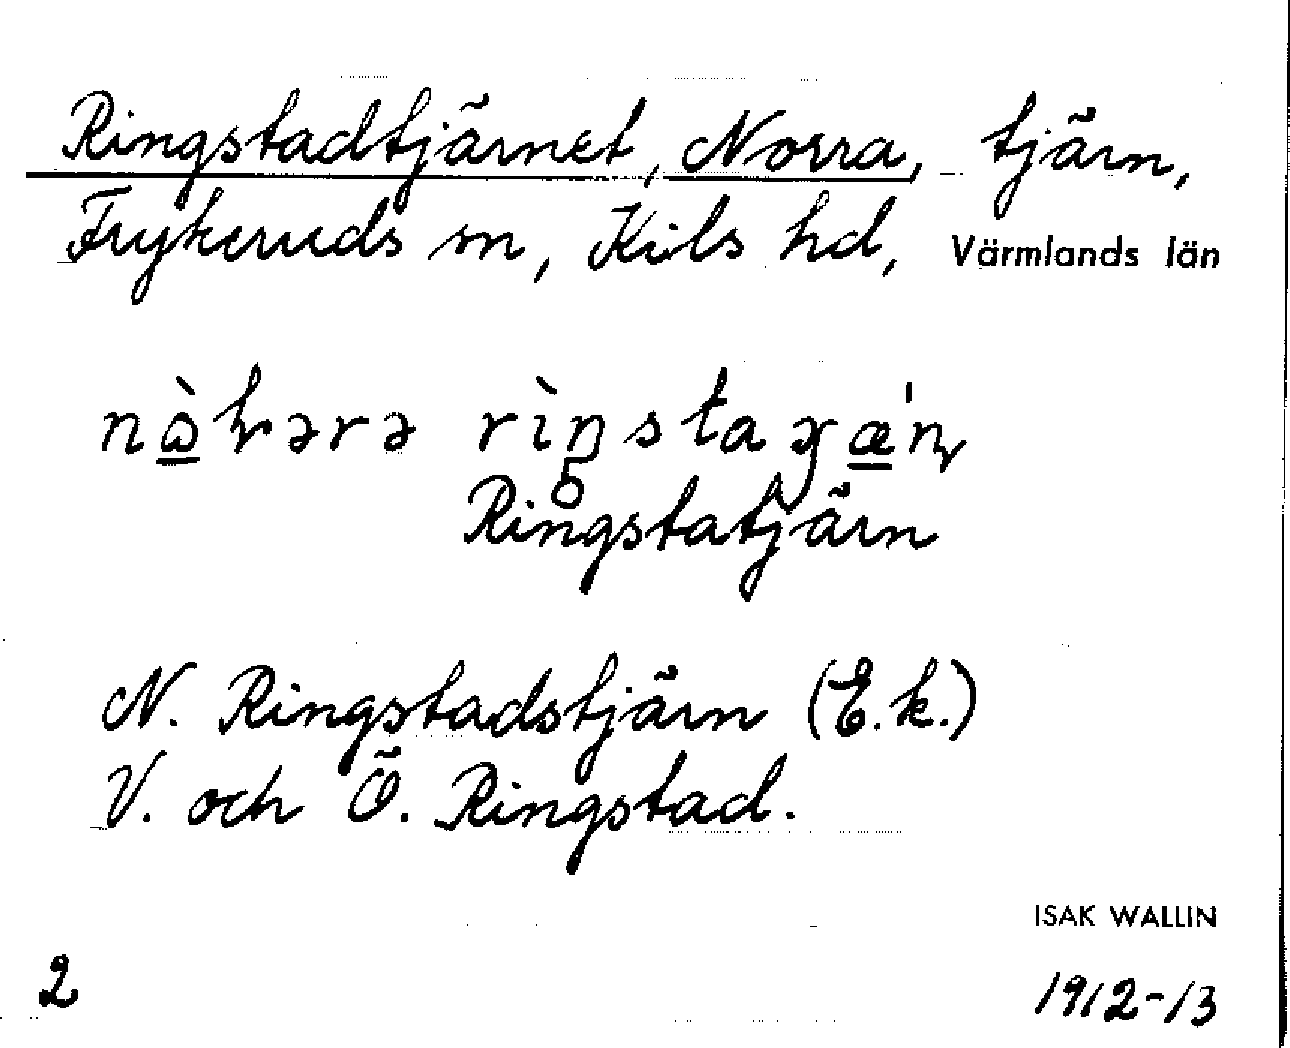 Ringstadtjärnet, Norra, tjärn,
Frykeruds sn, Kils hd, Värmlands län
Ringstatjärn
N. Ringstadstjärn (E.k.)
V. och Ö. Ringstad.
ISAK WALLIN
2 1912-13